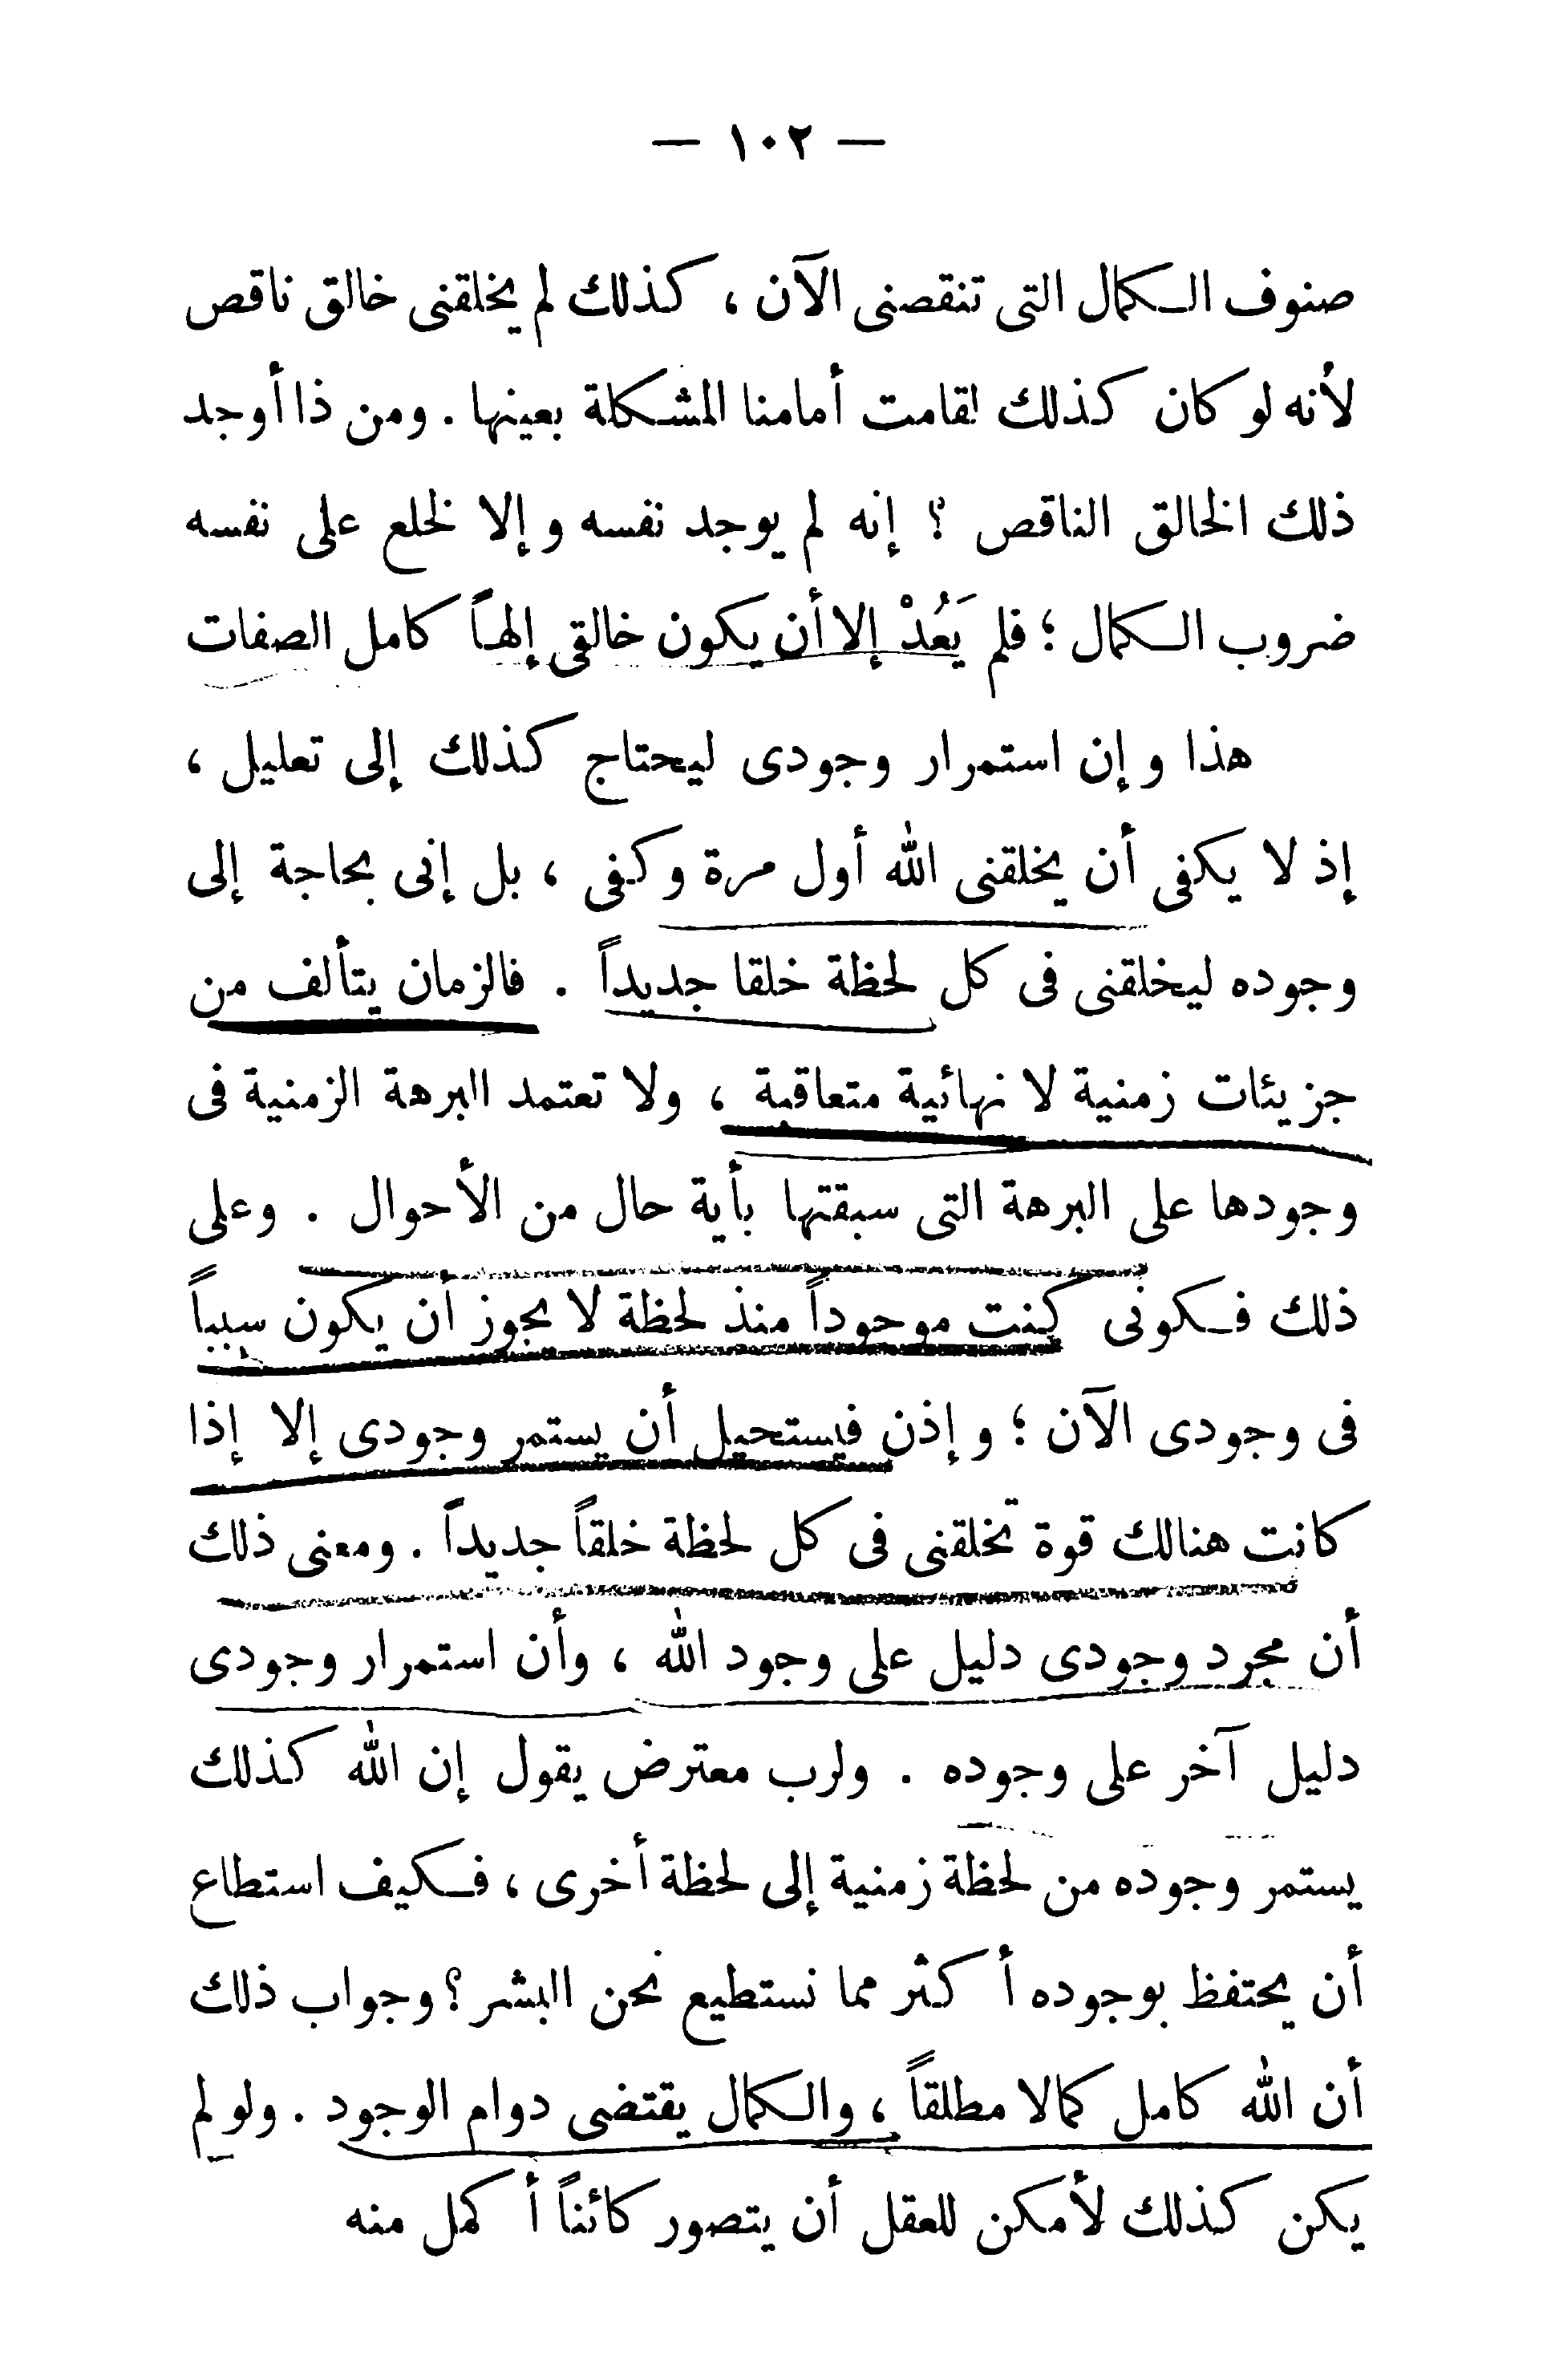 — ١٠٢ —
صنوف الكمال التى تنقصنى الآن ، كذلك لم يخلقنى خالق ناقص
لأنه لو كان كذلك لقامت أمامنا المشكلة بعينها . ومن ذا أوجد
ذلك الخالق الناقص ؟ إنه لم يوجد نفسه وإلا لخلع على نفسه
ضروب الكمال ؛ فلم يَعُدْ إلا أن يكون خالقى إلهاً كامل الصفات
هذا وإن استمرار وجودى ليحتاج كذلك إلى تعليل ،
إذ لا يكفى أن يخلقنى الله أول مرة وكفى ، بل إنى بحاجة إلى
وجوده ليخلقنى فى كل لحظة خلقا جديداً . فالزمان يتألف من
جزيئات زمنية لا نهائية متعاقبة ، ولا تعتمد البرهة الزمنية فى
وجودها على البرهة التى سبقتها بأية حال من الأحوال . وعلى
ذلك فكونى كنت موجوداً منذ لحظة لا يجوز أن يكون سبباً
فى وجودى الآن ؛ وإذن فيستحيل أن يستمر وجودى إلا إذا
كانت هنالك قوة تخلقنى فى كل لحظة خلقاً جديداً . ومعنى ذلك
أن مجرد وجودى دليل على وجود الله ، وأن استمرار وجودى
دليل آخر على وجوده . ولرب معترض يقول إن الله كذلك
يستمر وجوده من لحظة زمنية إلى لحظة أخرى ، فكيف استطاع
أن يحتفظ بوجوده أكثر مما نستطيع نحن البشر ؟ وجواب ذلك
أن الله كامل كمالا مطلقاً ، والكمال يقتضى دوام الوجود . ولو لم
يكن كذلك لأمكن للعقل أن يتصور كائناً أكمل منه